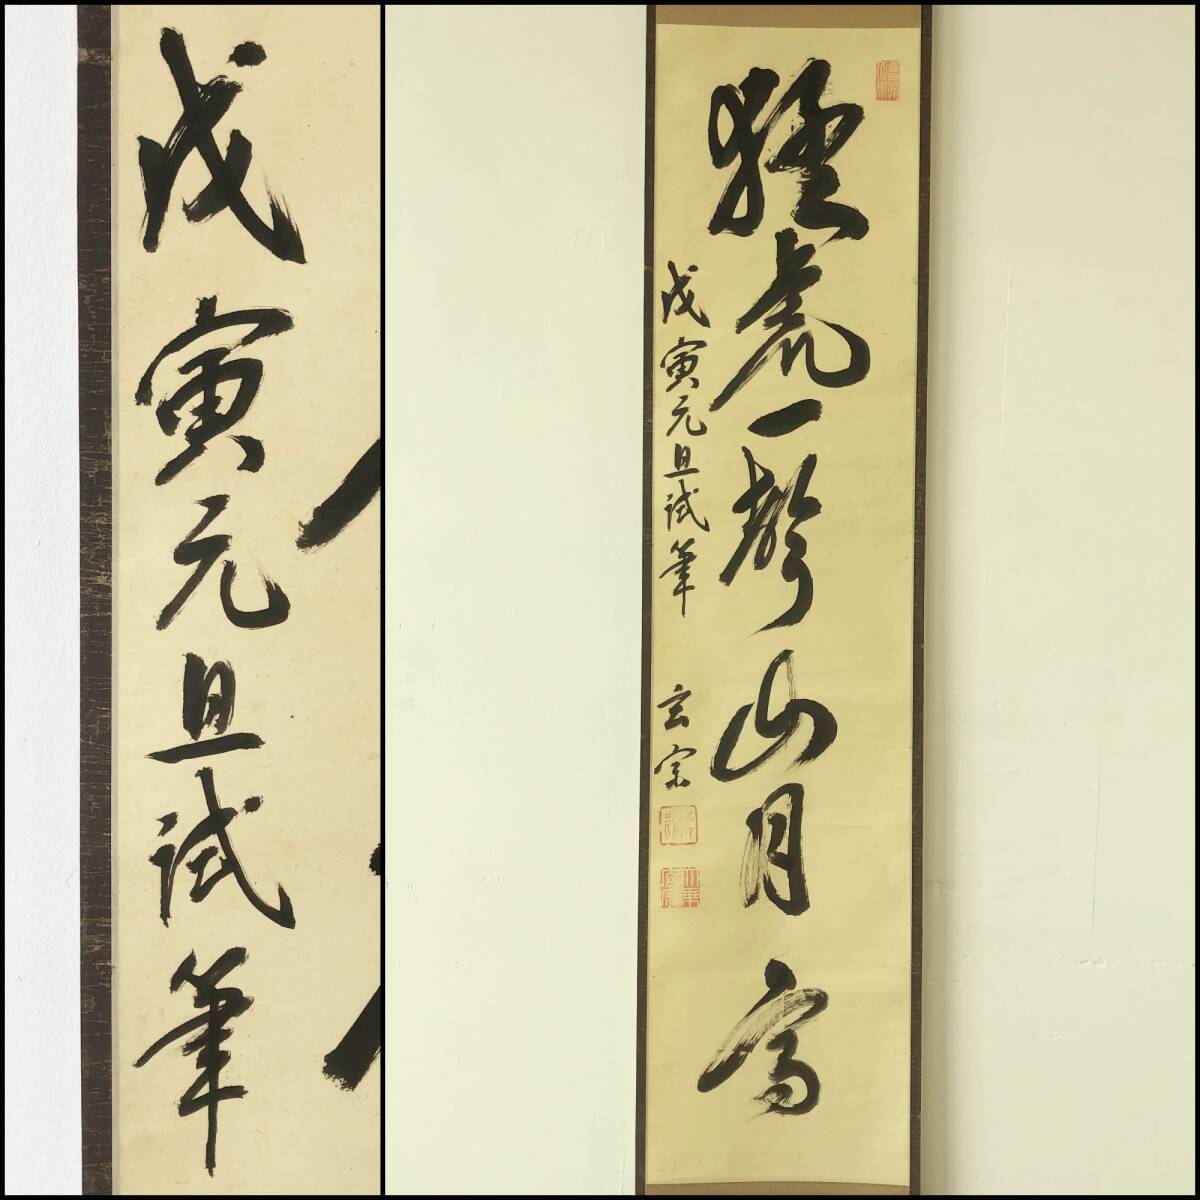 戊寅元旦試筆
猛虎一聲山月高
戊寅元旦試筆 玄宗